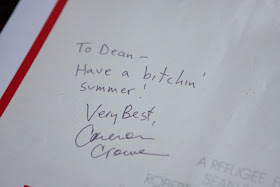 To Dean –
Have a bitchin'
summer!
Very Best,
Cameron
Crowe
A REFUGEE
SEAN
ROBERT